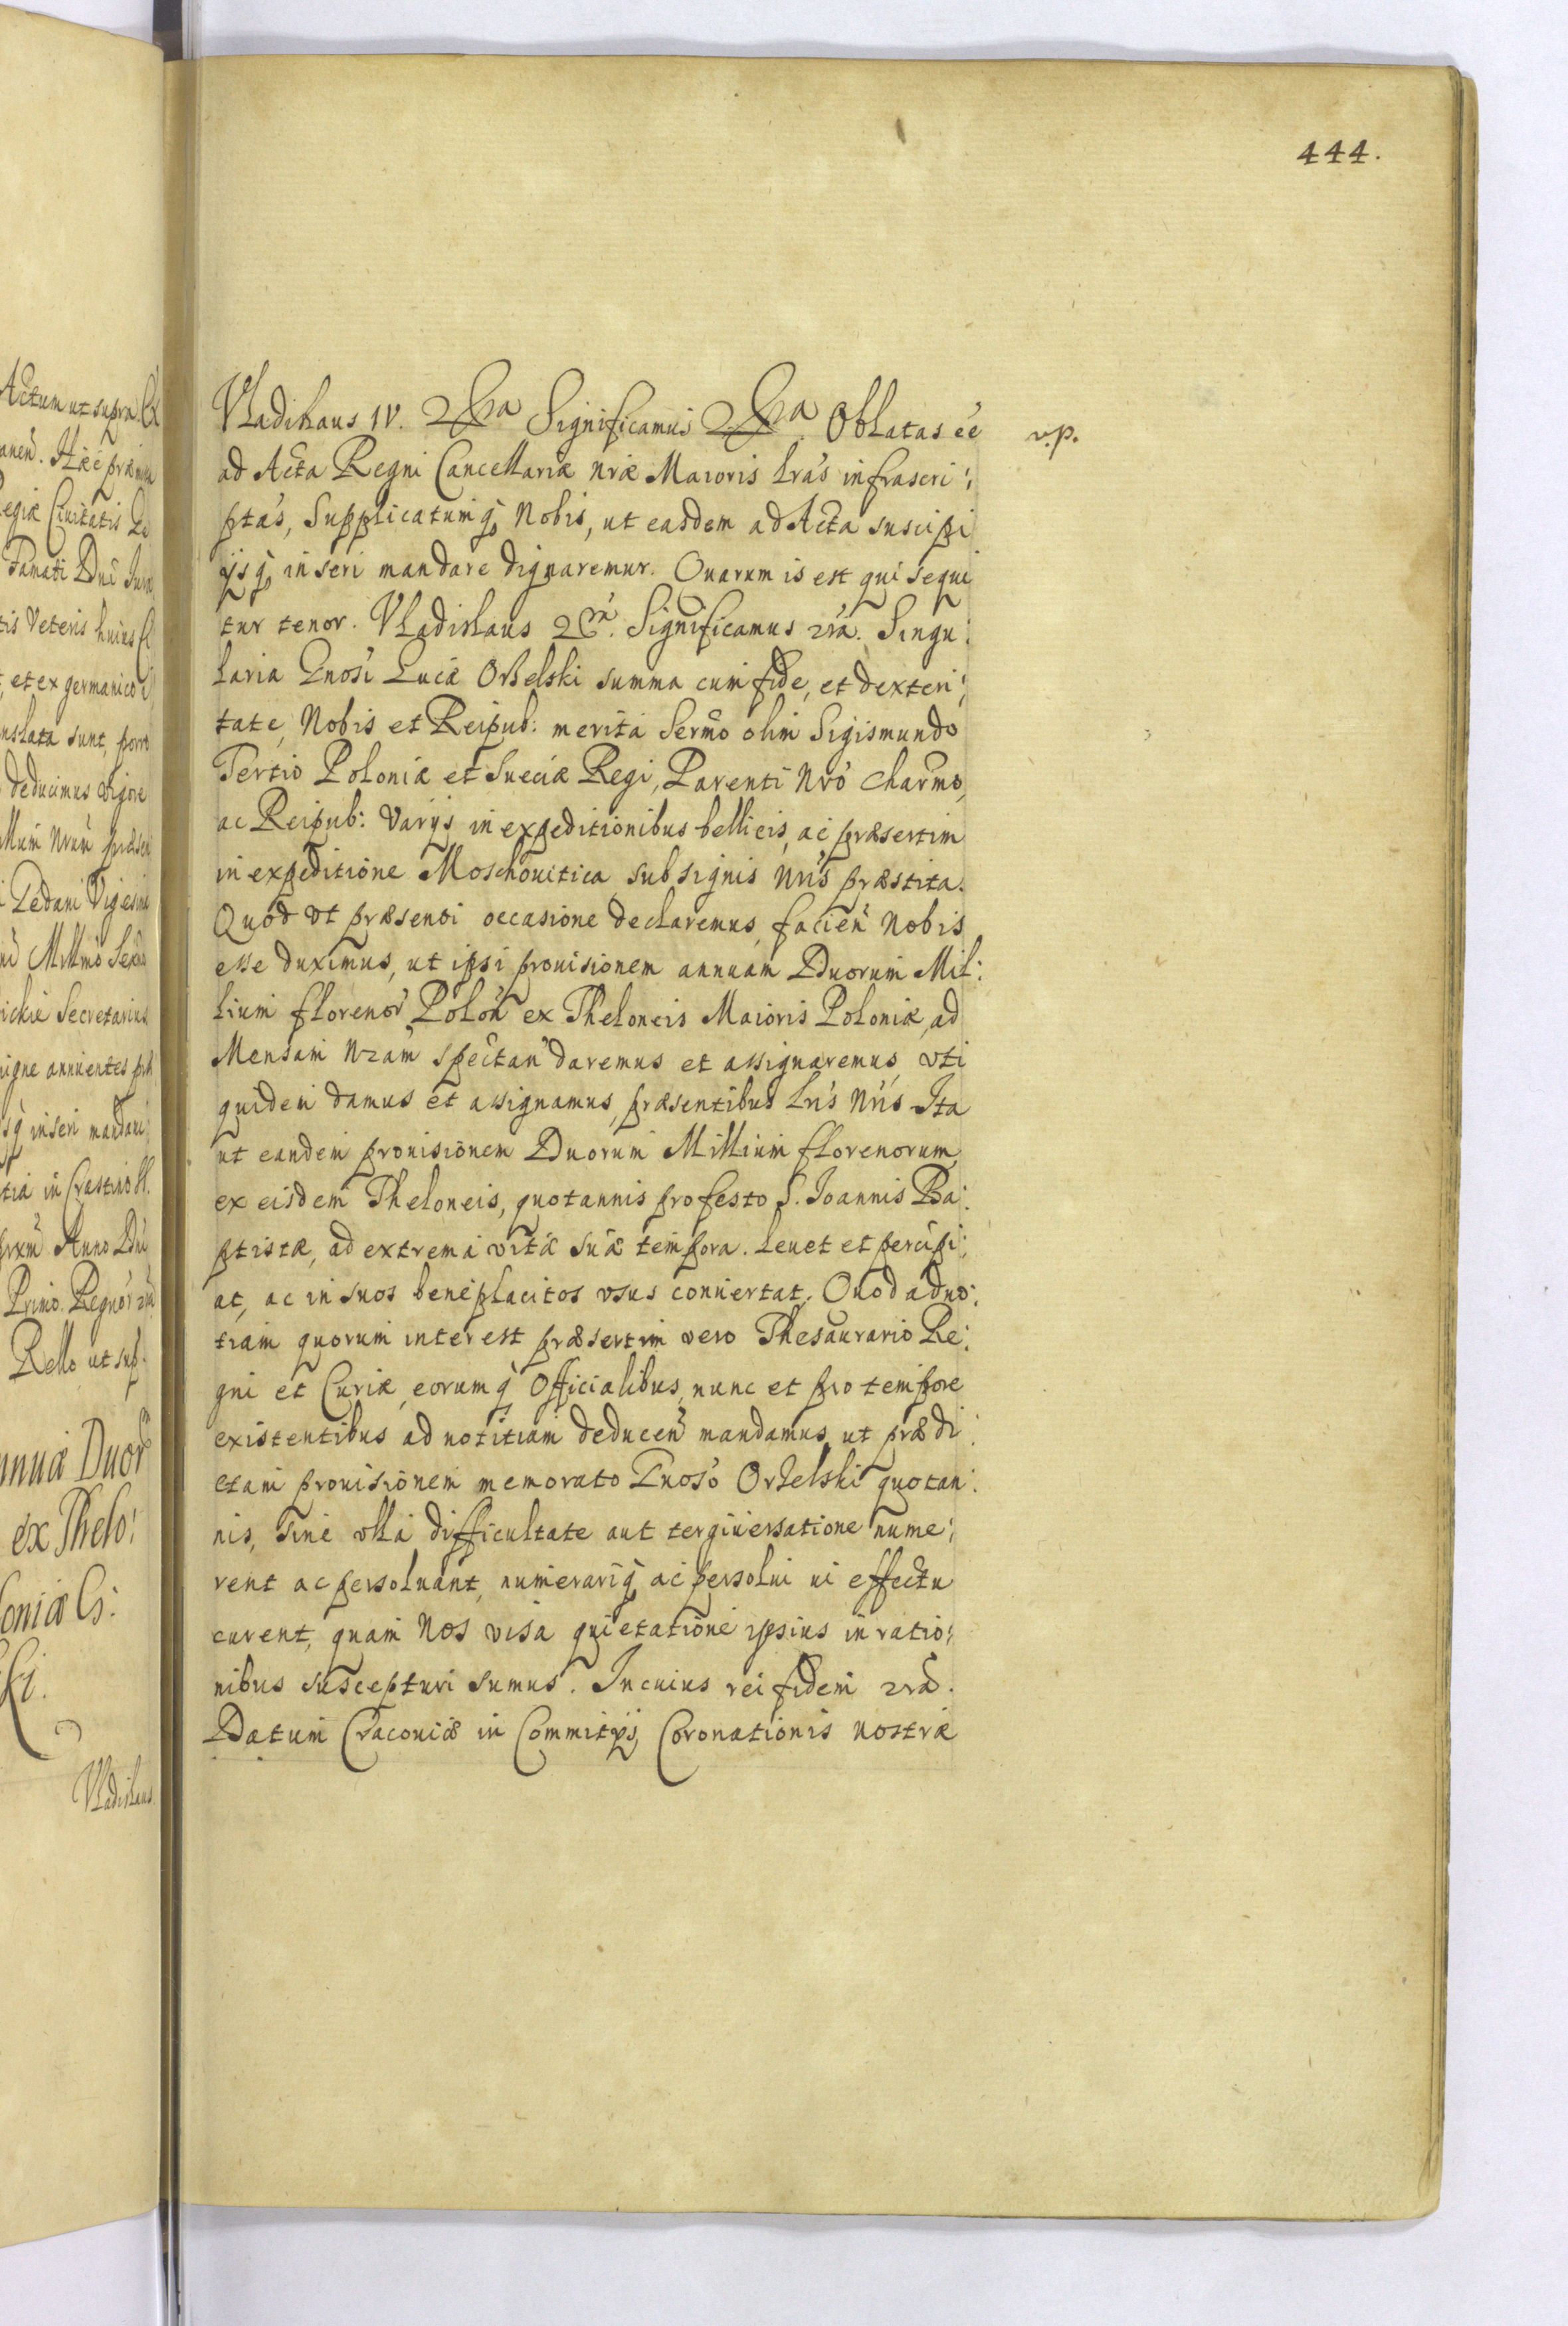 444.
Actum ut supra.
Regiæ Ciuitatis
Famati Dnĩ
tis Veteris huius
et ex germanico
nslata sunt, porro
deducimus vigore
Pedani Vigesimi
Millmo
ickie Secretarius
igne annuentes
inseri mandaui
tia in Crastino
Anno Dni
Primo. Regnor̃
Rello ut sup.
nnuæ Duor̃
ex Thelo:
loniæ
Vladislaus
Vladislaus IV. 2ra Significamus 2ra. Oblatas eẽ
v.p.
ad Acta Regni Cancellariæ nr̃æ Maioris lr̃as infrascri:
ptas, Supplicatumq; Nobis, ut easdem ad Acta suscipi
ijsq; inseri mandare dignaremur. Quarum is est qui sequi
tur tenor. Vladislaus 2rã. Significamus 2rã. Singu:
laria Gnosi Lucæ Orzelski summa cum fide, et dexteri:
tate, Nobis et Reipub: merita Sermõ olim Sigismundo
Tertio Poloniæ et Sueciæ Regi, Parenti Nr̃o Charmo,
ac Reipub: Varijs in expeditionibus bellicis, ac præsertim
in expeditione Moschouitica sub signis Nr̃is præstita.
Quod vt præsenti occasione declaremus, facieñ Nobis
esse duximus, ut ipsi prouisionem annuam Duorum Mil:
lium florenor̃ Poloñ ex Theloneis Maioris Poloniæ, ad
Mensam Nr̃am spectañ daremus et assignaremus, vti
quidem damus et assignamus, præsentibus Lr̃is Nr̃is. Ita
ut eandem prouisionem Duorum Millium florenorum,
ex eisdem Theloneis, quotannis pro festo S. Ioannis Ba:
ptistæ, ad extrema vitæ suæ tempora. leuet et percipi:
at, ac in suos beneplacitos vsus conuertat. Quod ad no:
tiam quorum interest præsertim vero Thesaurario Re:
gni et Curiæ, eorumq; Officialibus, nunc et pro tempore
existentibus ad notitiam deduceñ mandamus ut prædi:
ctam prouisionem memorato Gnoso Orzelski quotan:
nis, sine vlla difficultate aut tergiuersatione nume:
rent ac persoluant, numerariq; ac persolui ui effectu
curent, quam Nos visa quietatione ipsius in ratio:
nibus suscepturi sumus. In cuius rei fidem 2rã.
Datum Cracouiæ in Commitijs Coronationis nostræ